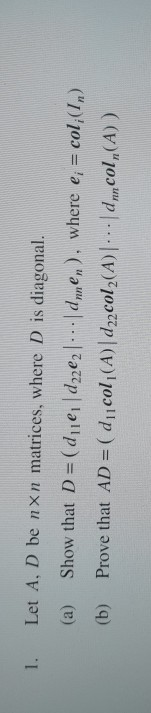 1. Let A, D be n×n matrices, where D is diagonal.
(a) Show that D = ( d₁₁e₁ | d₂₂e₂ | ⋯ | dₙₙeₙ ), where eᵢ = colᵢ(Iₙ)
(b) Prove that AD = ( d₁₁col₁(A) | d₂₂col₂(A) | ⋯ | dₙₙcolₙ(A) )